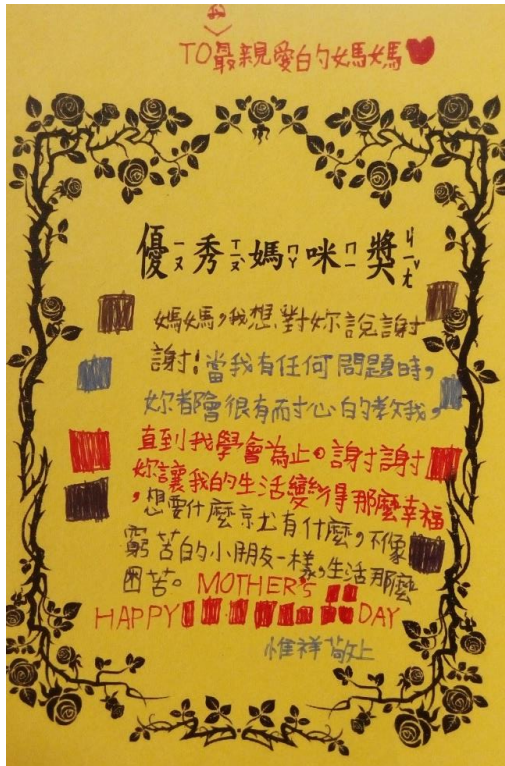 TO最親愛的媽媽
優ㄧㄡ秀ㄒㄧㄡˋ媽ㄇㄚ咪ㄇㄧ獎ㄐㄧㄤˇ
媽媽，我想對妳說謝
謝！當我有任何問題時，
妳都會很有耐心的教我，
直到我學會為止。謝謝
妳讓我的生活變得那麼幸福
，想要什麼就有什麼，不像
窮苦的小朋友一樣，生活那麼
困苦。MOTHER'S
HAPPY DAY
惟祥敬上